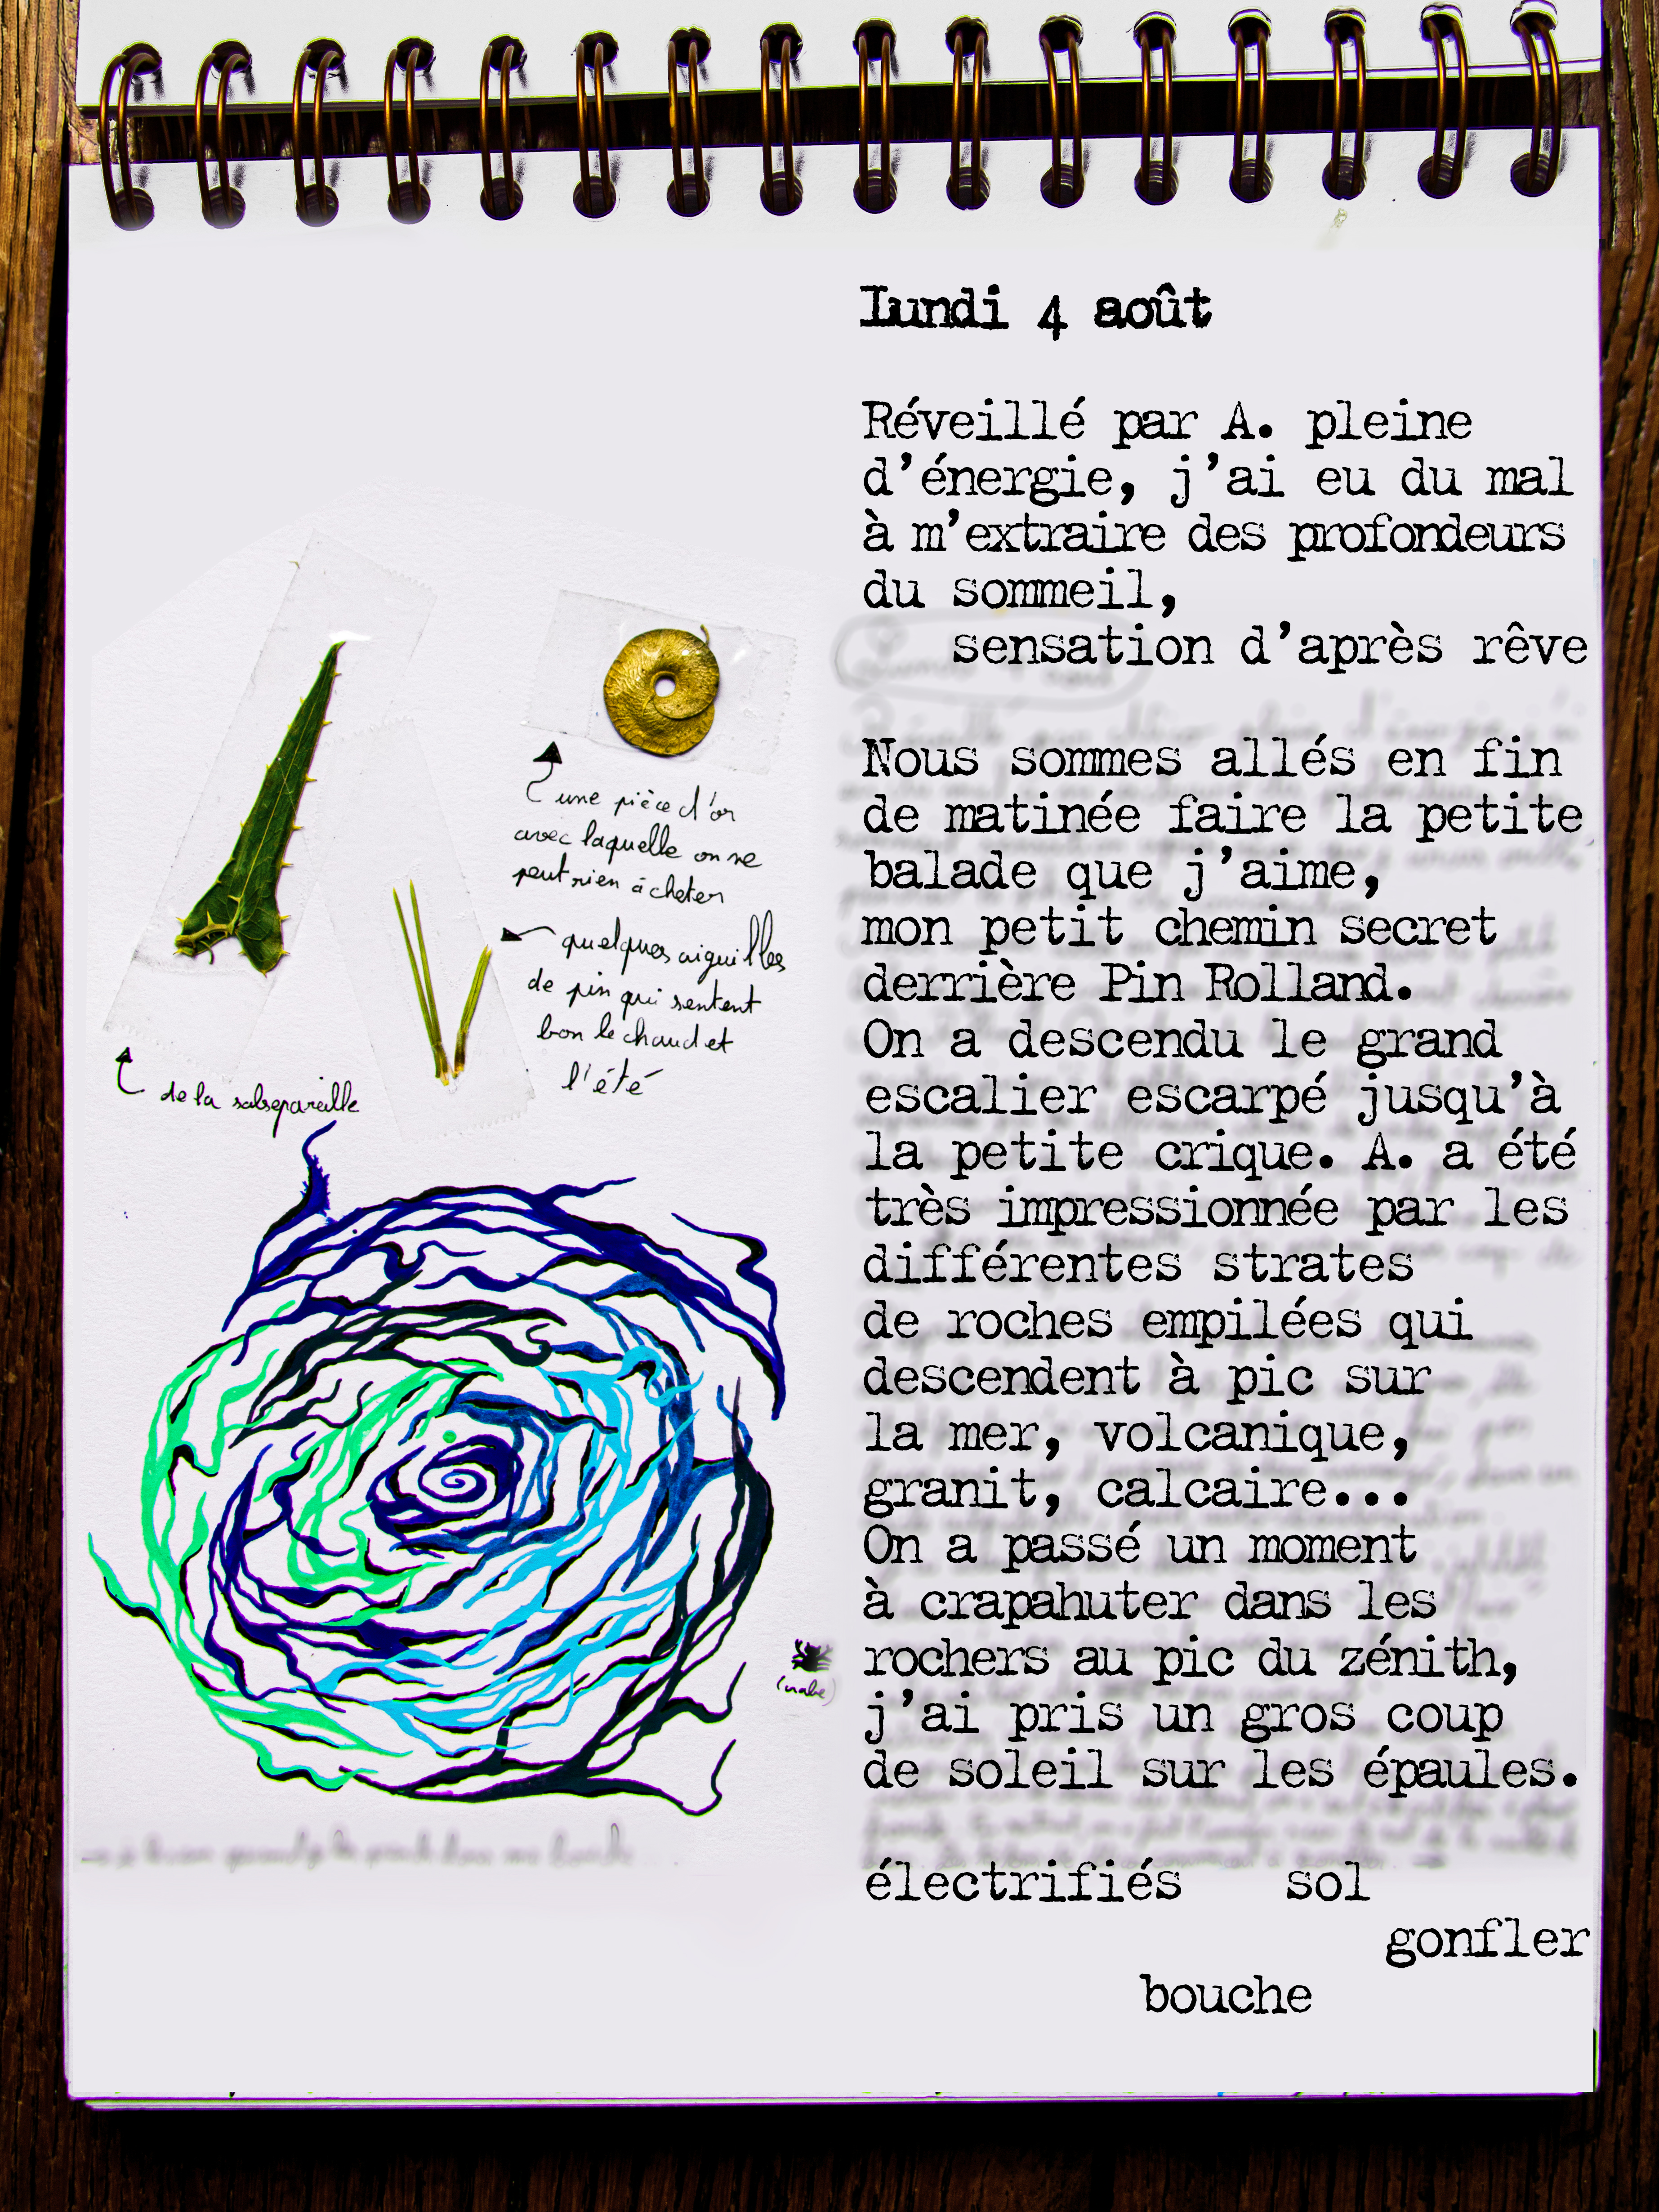 lundi 4 août
Réveillé par A. pleine
d'énergie, j'ai eu du mal
à m'extraire des profondeurs
du sommeil,
sensation d'après rêve
Nous sommes allés en fin
de matinée faire la petite
balade que j'aime,
mon petit chemin secret
derrière Pin Rolland.
On a descendu le grand
escalier escarpé jusqu'à
la petite crique. A. a été
très impressionnée par les
différentes strates
de roches empilées qui
descendent à pic sur
la mer, volcanique,
granit, calcaire...
On a passé un moment
à crapahuter dans les
rochers au pic du zénith,
j'ai pris un gros coup
de soleil sur les épaules.
électrifiés sol
gonfler
bouche
une pièce d'or
avec laquelle on ne
peut rien acheter
quelques aiguilles
de pin qui sentent
bon le chaud et
l'été
de la salsepareille
(crabe)